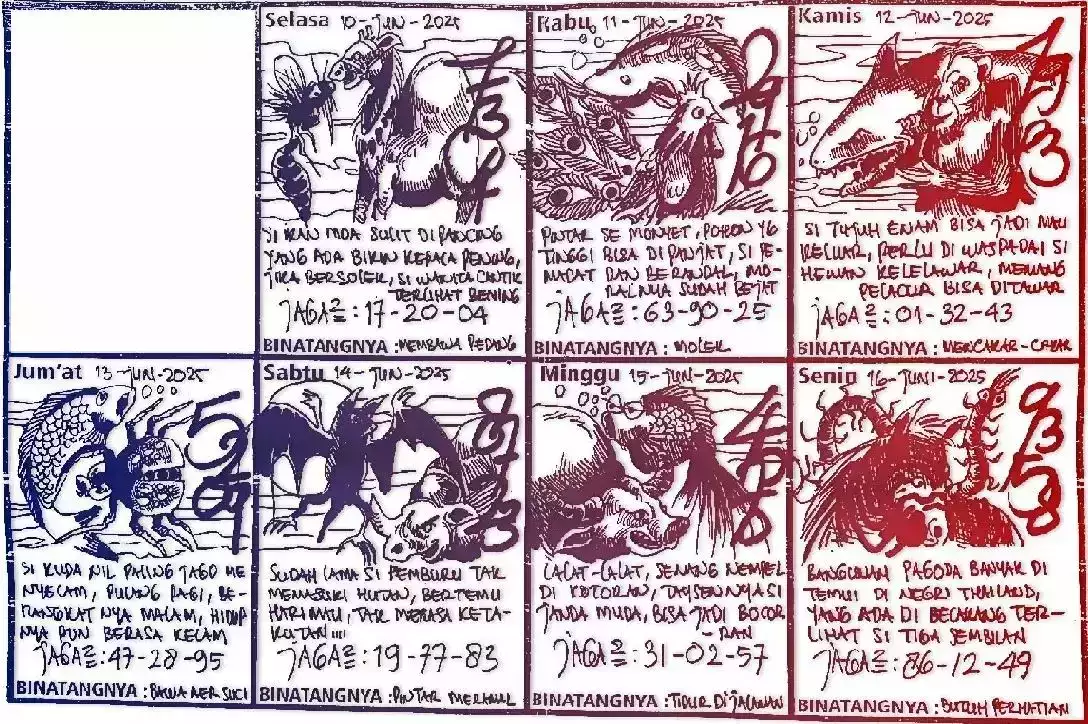 Selasa 10-JUN-2025
SI IKAN MOA SULIT DIPANCING
YANG ADA BIKIN KEPALA PENING,
JIKA BERSOLEK, SI WANITA CANTIK
TERLIHAT BENING
JAGA2 : 17-20-04
BINATANGNYA : MEMBAWA PEDANG
Rabu 11-JUN-2025
PINTAR SE MONYET, POHON YG
TINGGI BISA DI PANJAT, SI PE-
DAN BERANDAL, MO-
RALNYA SUDAH BEJAT
JAGA2 : 63-90-25
BINATANGNYA : MOLEK
Kamis 12-JUN-2025
SI TUJUH ENAM BISA JADI MAU
KELUAR, PERLU DI WASPADAI SI
HEWAN KELELAWAR, MEMANG
PELACUR BISA DITAWAR
JAGA2 : 01-32-43
BINATANGNYA : MENCAKAR-CAKAR
Jum'at 13-JUN-2025
SI KUDA NIL PALING JAGO ME
NYELAM, PULANG PAGI, BE-
RANGKAT NYA MALAM, HIDUP
NYA PUN BERASA KELAM
JAGA2 : 47-28-95
BINATANGNYA : BAWA AER SUCI
Sabtu 14-JUN-2025
SUDAH LAMA SI PEMBURU TAK
MEMASUKI HUTAN, BERTEMU
HARIMAU, TAK MERASA KETA-
KUTAN !!!!
JAGA2 : 19-77-83
BINATANGNYA : PINTAR MERAMAL
Minggu 15-JUN-2025
LALAT-LALAT, SENANG NEMPEL
DI KOTORAN, SI
JANDA MUDA, BISA JADI BOCOR
-RAN
JAGA2 : 31-02-57
BINATANGNYA : TIDUR DI JALANAN
Senin 16-JUNI-2025
9358
BANGUNAN PAGODA BANYAK DI
TEMUI DI NEGRI THAILAND,
YANG ADA DI BELAKANG TER-
LIHAT SI TIGA SEMBILAN
JAGA2 : 86-12-49
BINATANGNYA : BUTUH PERHATIAN